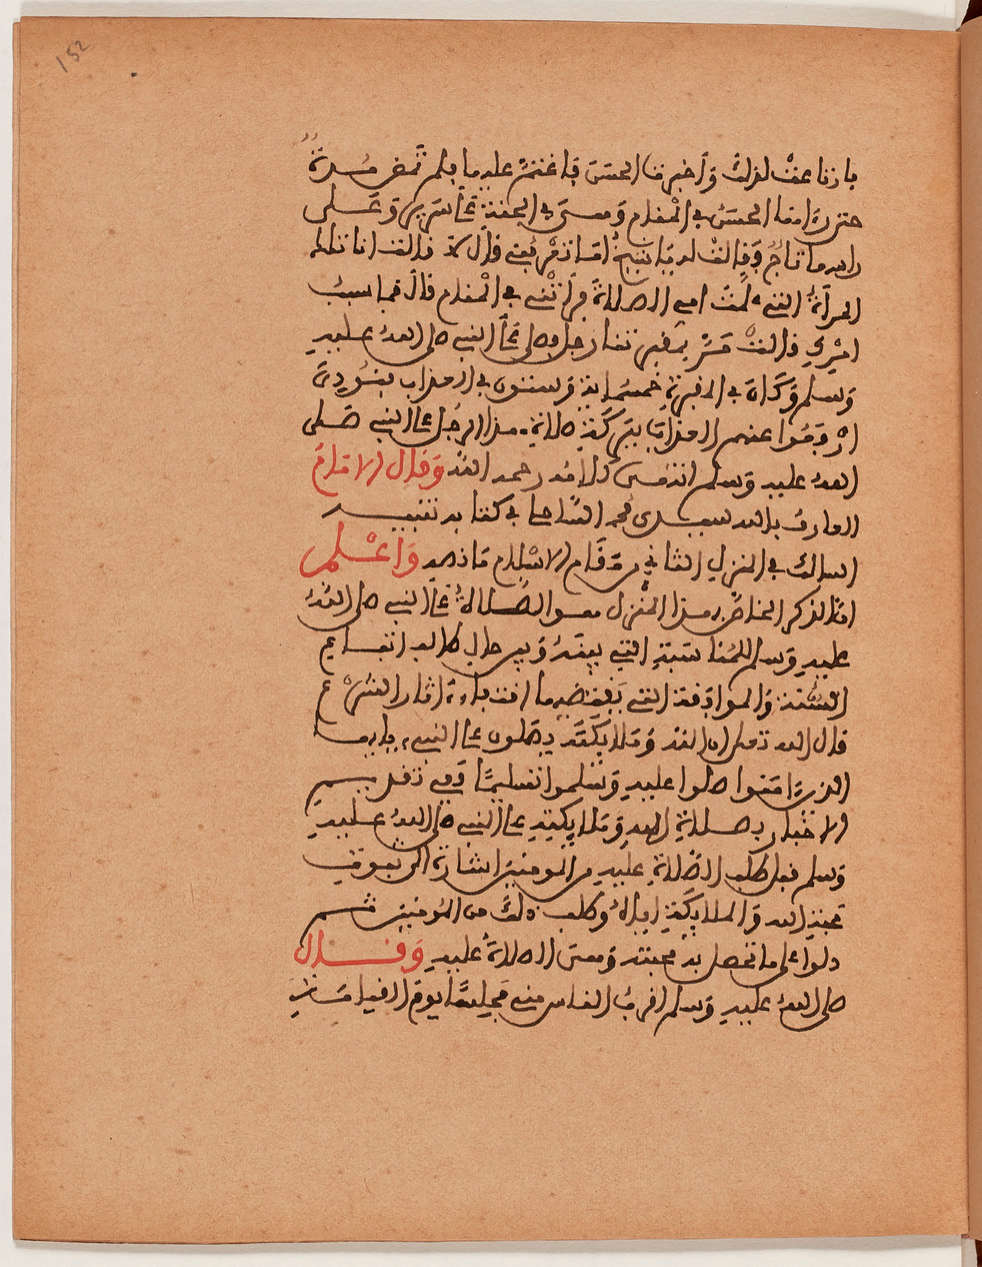 152
فارتاعت لذلك وأخبرت الحسن فاغتم عليها فلم تمض مدة
حتى رءاها الحسن في المنام وهي في الجنة على سرير وعلى
رأسها تاج وقالت له يا شيخ أما تعرفني قال لا قالت أنا تلك
المرأة التي علمت أمي الصلاة فرأتني في المنام قال فما سبب
أمرك قالت مر بمقبرتنا رجل وصلى على النبي صلى الله عليه
وسلم وكان في المقبرة خمسمائة وستون في العذاب فنودي
ارفعوا عنهم العذاب ببركة صلاة هذا الرجل على النبي صلى
الله عليه وسلم انتهى كلامه رحمه الله وقال الإمام
العارف بالله سيدي محمد الساحلي في كتابه تنبيه
السالك في المنزل الثاني من مقام الإسلام ما نصه واعلم
أن الذكر الخاص بهذا المنزل هو الصلاة على النبي صلى الله
عليه وسلم للمناسبة التي بينه وبين حال طالب اتباع
السنة والموافقة التي يقتضيها اقتفاء ءاثار الشرع
قال الله تعلى إن الله وملائكته يصلون على النبيء يأيها
الذين ءامنوا صلوا عليه وسلموا تسليما وفي تقديم
الإخبار بصلاة الله وملائكته على النبي صلى الله عليه
وسلم قبل طلب الصلاة عليه من المومنين إشارة إلى
محبة الله والملائكة إياه وطلب ذلك من المومنين ثم
دلوا على ما تحصل به محبته وهي الصلاة عليه وقال
صلى الله عليه وسلم أقرب الناس مني مجلسا يوم القيامة